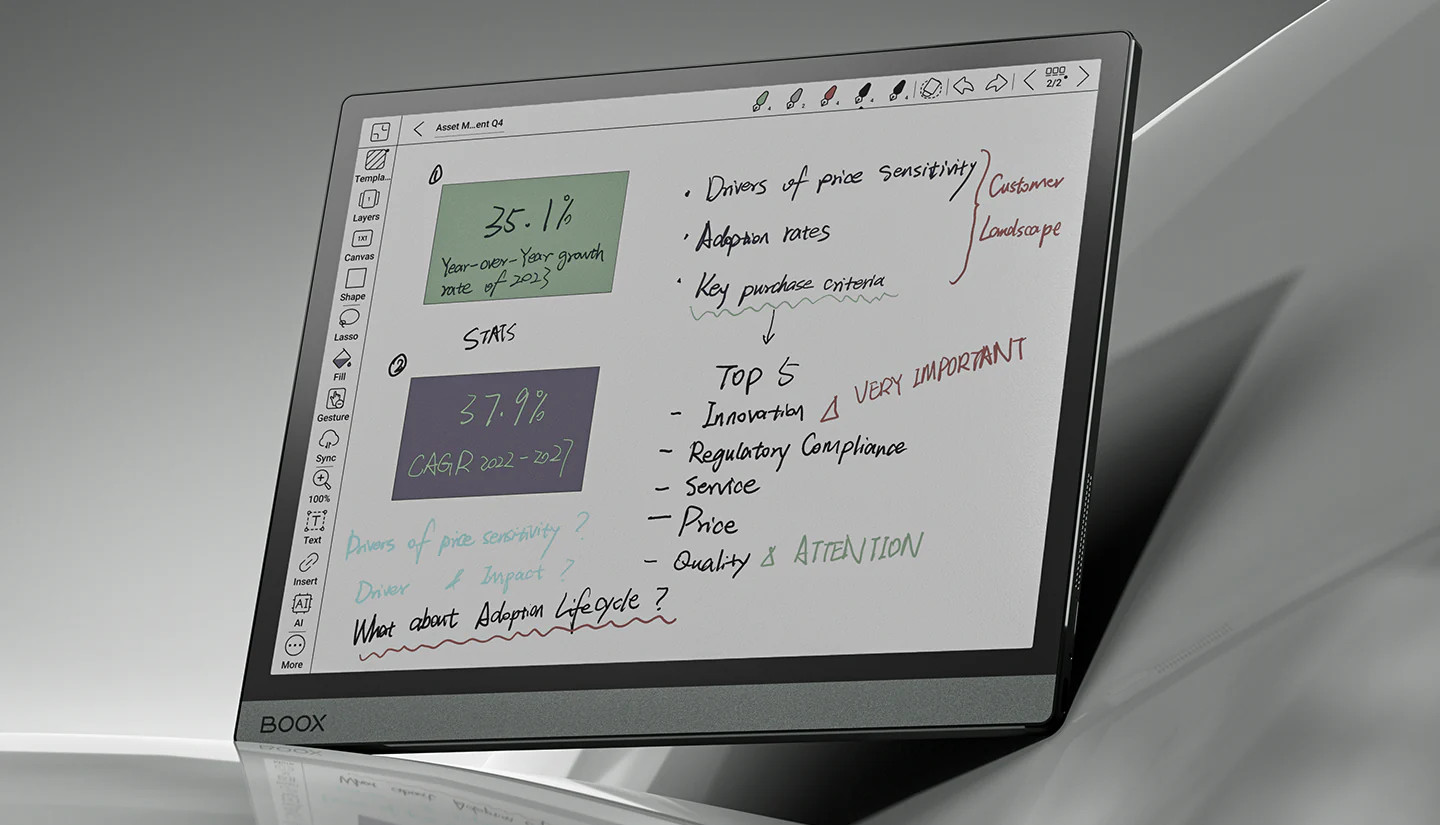 Asset M...ent Q4
2/2
Templa...
Layers
1X1
Canvas
Shape
Lasso
Fill
Gesture
Sync
100%
T
Text
Insert
AI
AI
More
1
35.1%
Year-over-Year growth
rate of 2023
STATS
2
37.9%
CAGR 2022-2027
Drivers of price sensitivity ?
Driver & Impact ?
What about Adoption Lifecycle ?
• Drivers of price sensitivity
• Adoption rates
• Key purchase criteria
Customer
Landscape
Top 5
- Innovation
VERY IMPORTANT
- Regulatory Compliance
- Service
- Price
- Quality
ATTENTION
BOOX